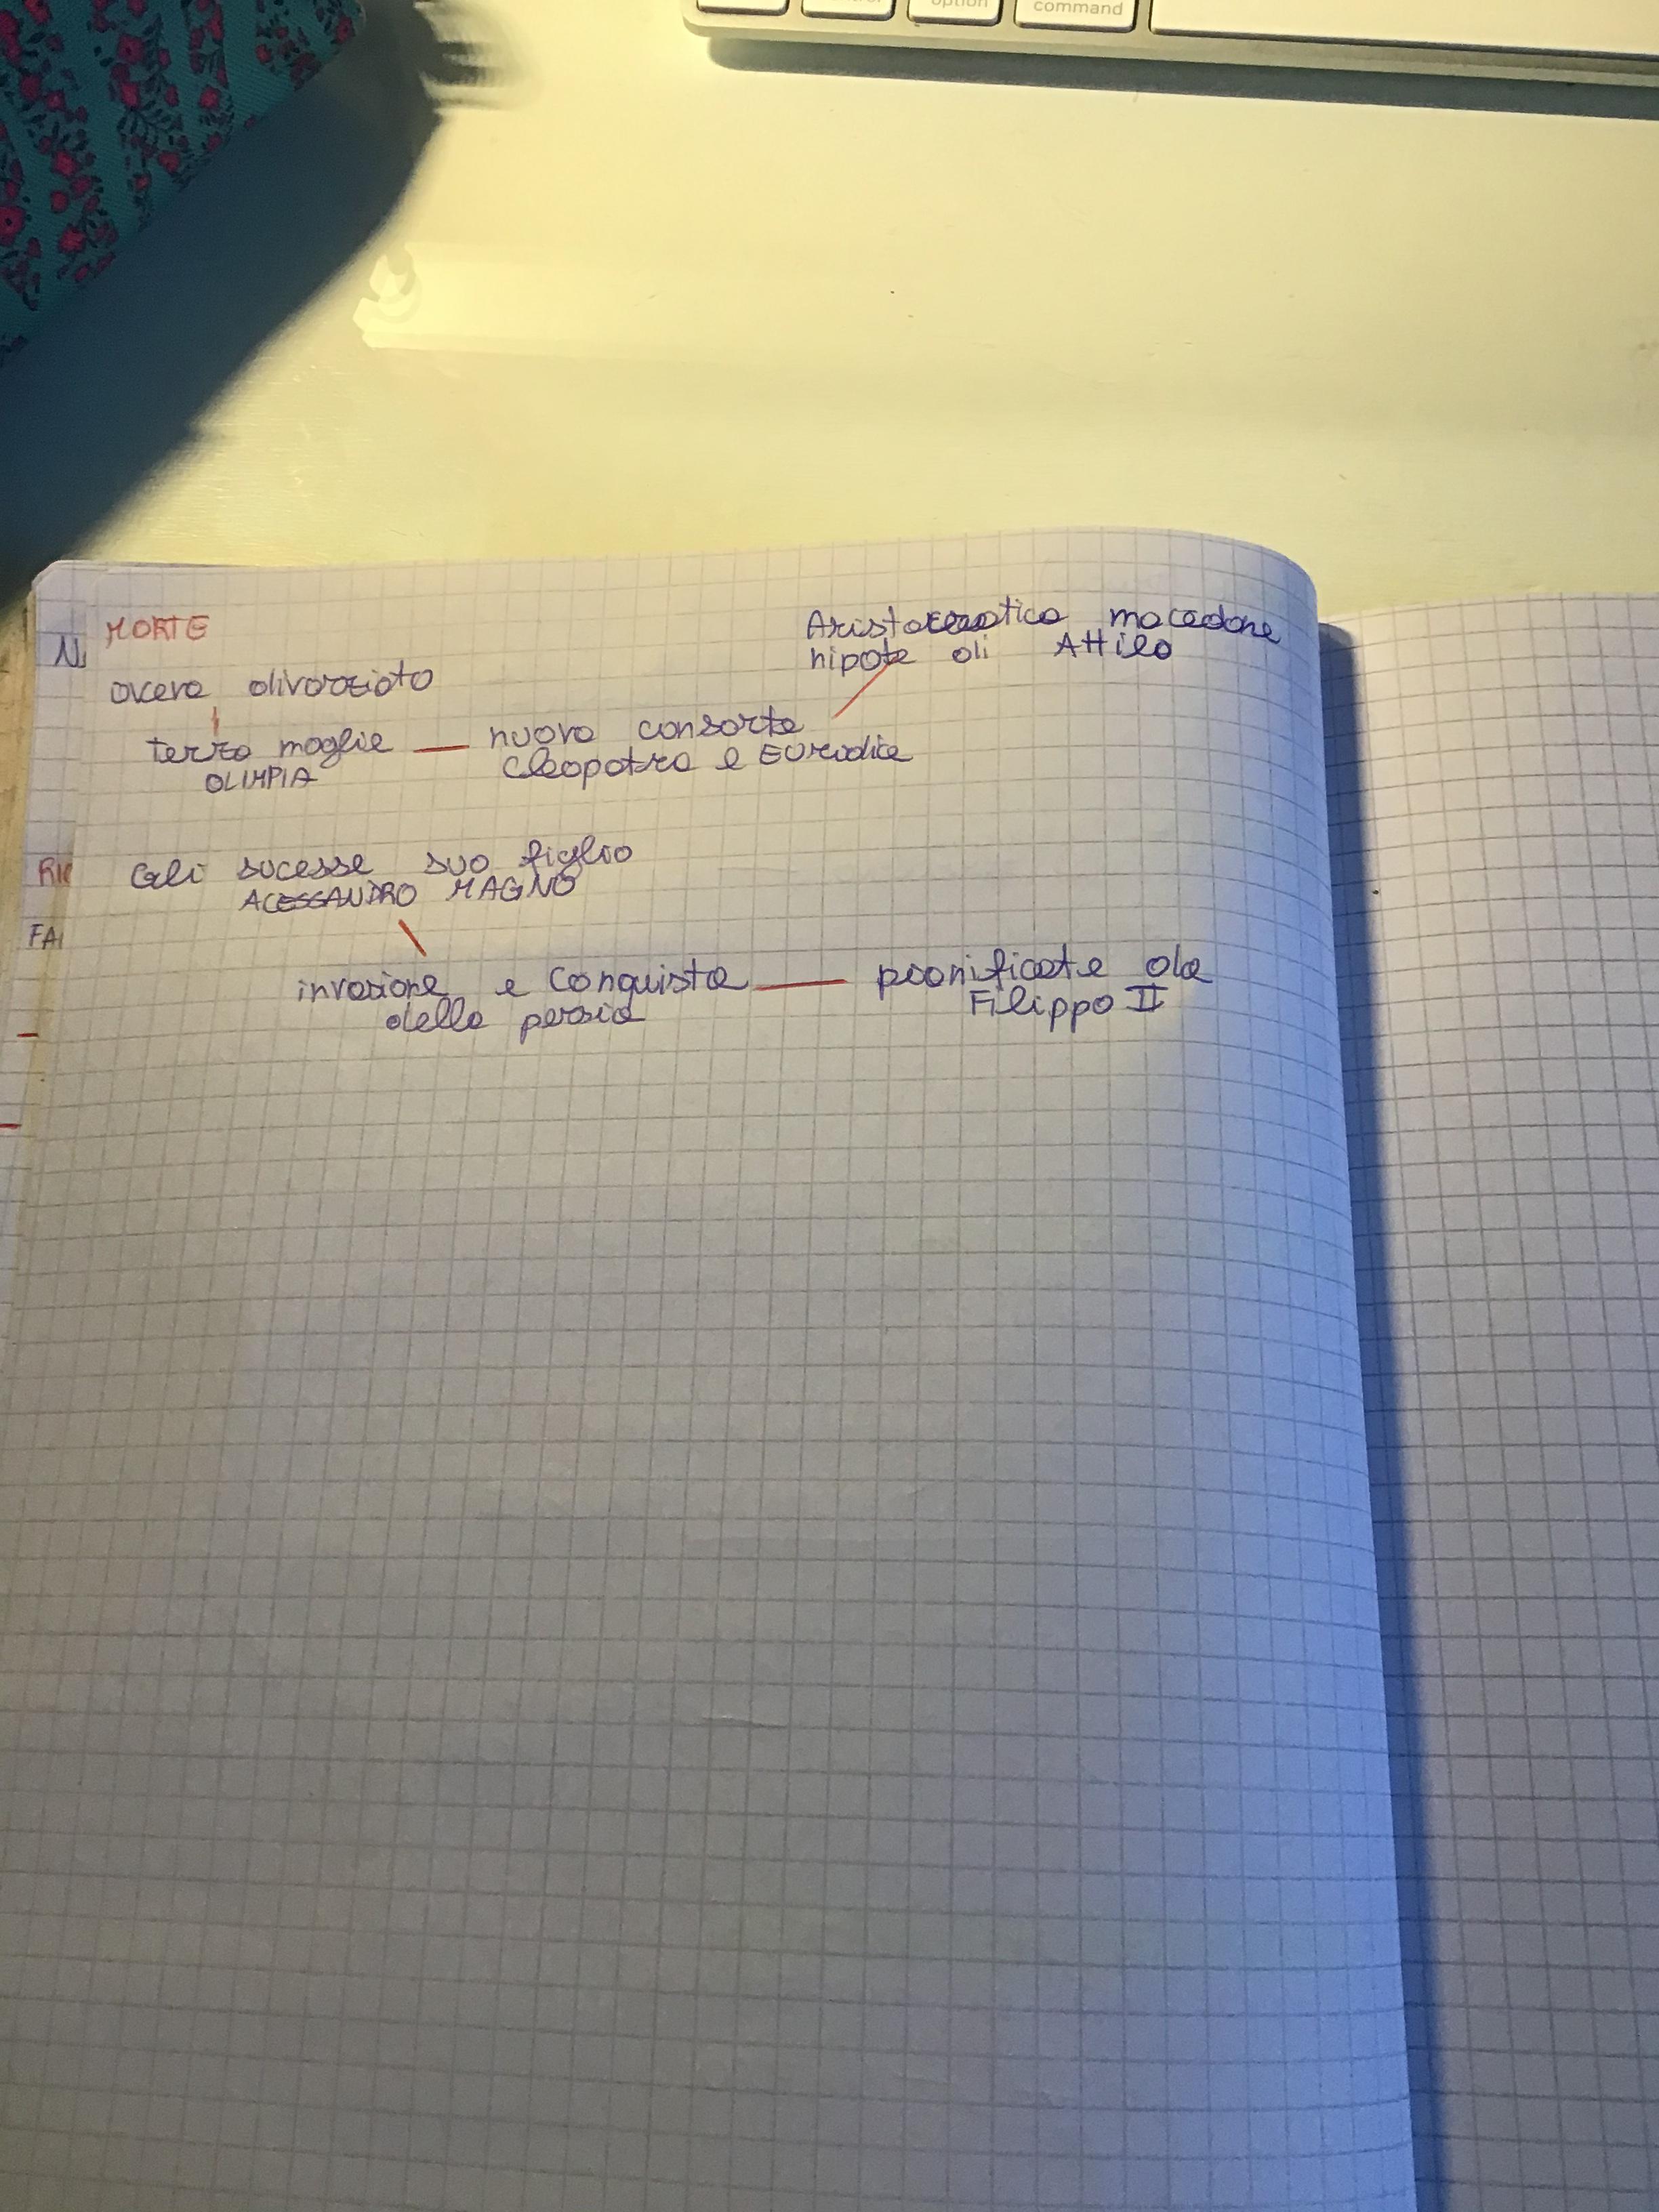 option
command
MORTE
Aristocratica macedone
nipote di Attilo
aveva divorziato
terza moglie
nuova consorte
OLIMPIA
Cleopatra e Euridice
Gli sucesse suo figlio
ALESSANDRO MAGNO
invasione e Conquista
della persia
pianificate da
Filippo II